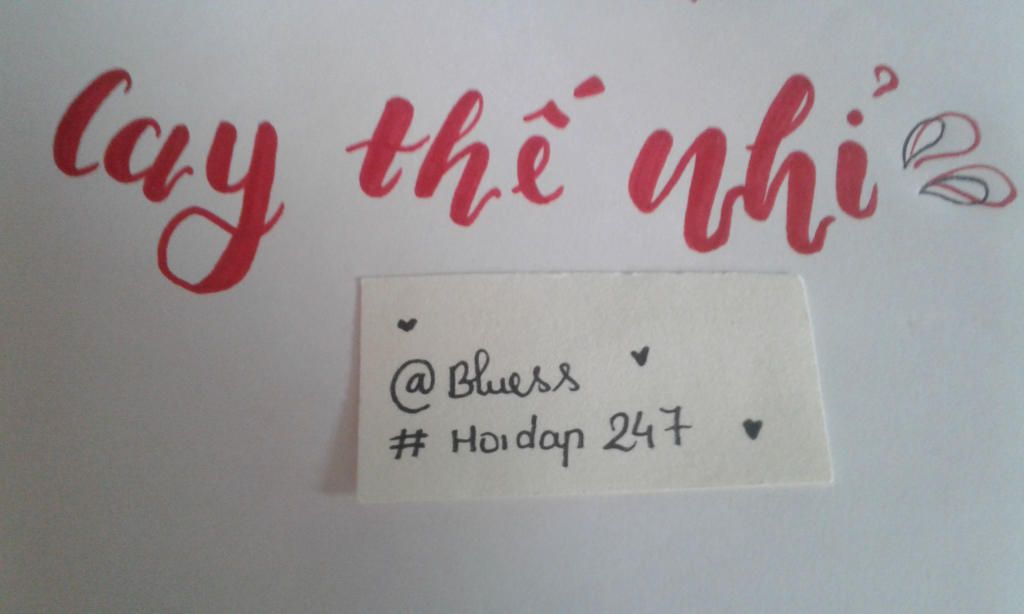 Cay thế nhỉ
@Bluess
# Hoidap 247